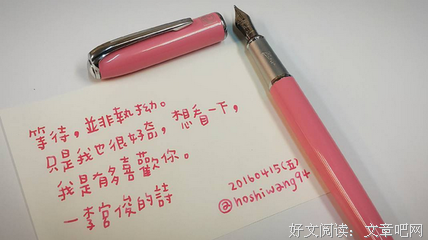 等待，並非執拗。
只是我也很好奇，想看一下，
我是有多喜歡你。
—李宮俊的詩
20160415(五)
@hoshiwang94
好文阅读：文章吧网